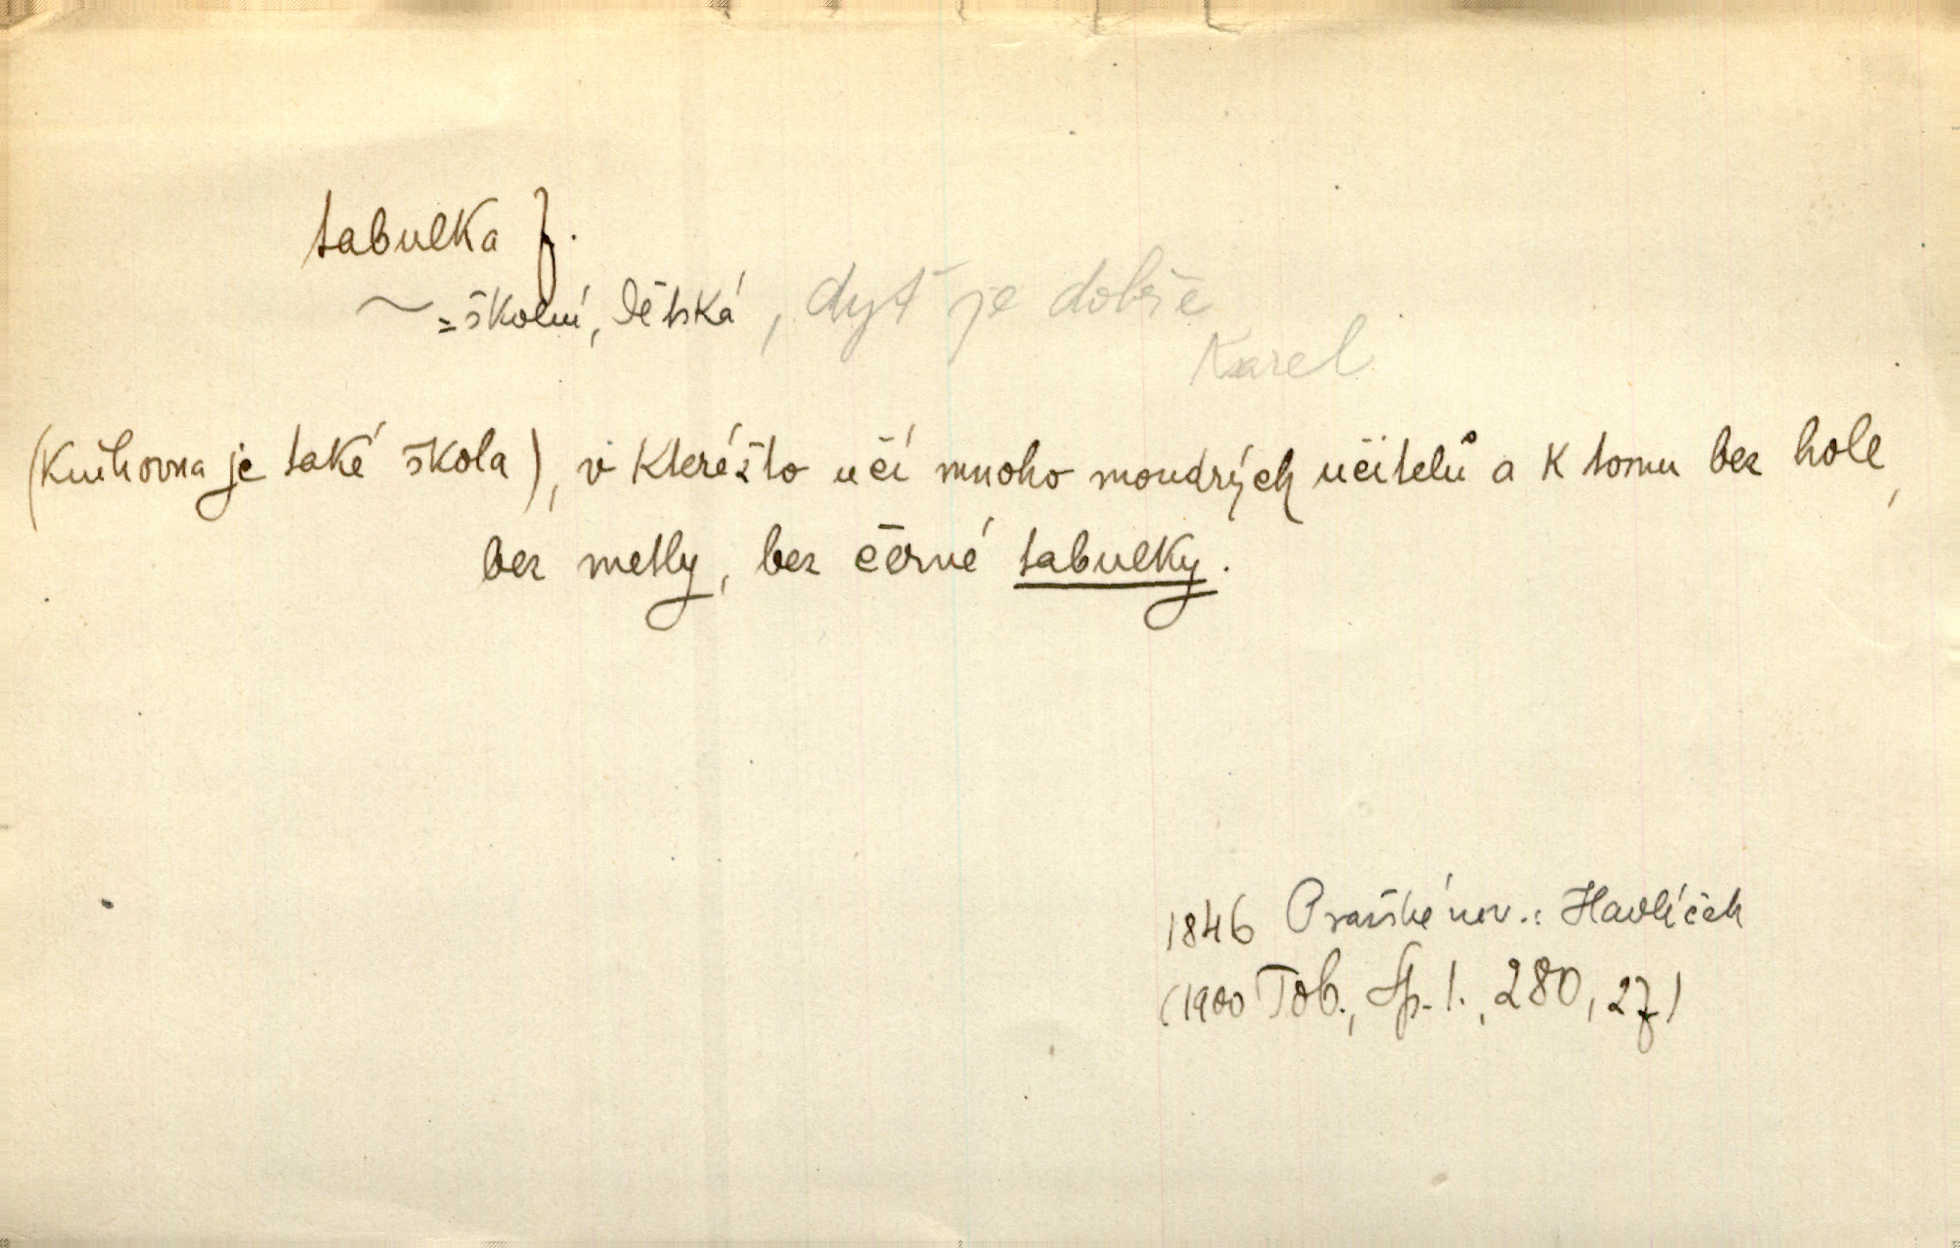 tabulka f.
~ = školní, dětská, dyť je dobře
Karel
(Knihovna je také škola), v kteréžto učí mnoho moudrých učitelů a k tomu bez hole,
bez metly, bez černé tabulky.
1846 Pražské nov.: Havlíček
(1900 Tob., Sp. 1., 280, 27)